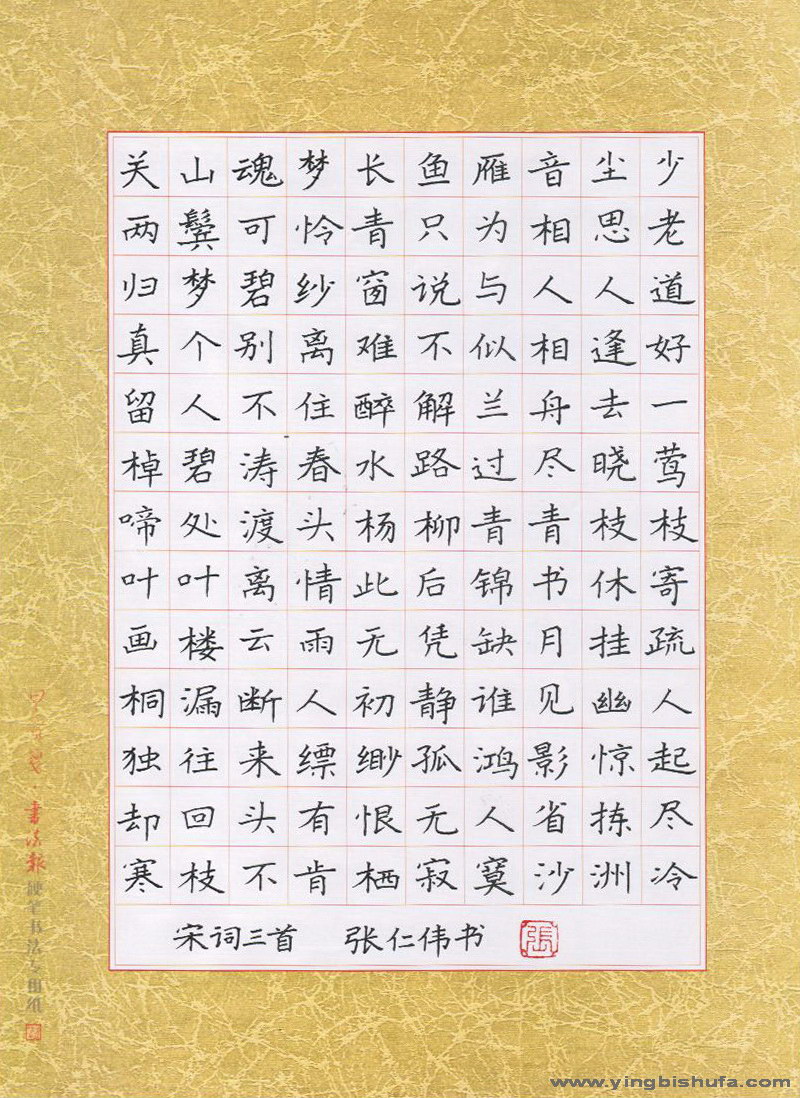 关山魂梦长鱼雁音尘少
两鬓可怜青只为相思老
归梦碧纱窗说与人人道
真个别离难不似相逢好
留人不住醉解兰舟去一
棹碧涛春水路过尽晓莺
啼处渡头杨柳青青枝枝
叶叶离情此后锦书休寄
画楼云雨无凭缺月挂疏
桐漏断人初静谁见幽人
独往来缥缈孤鸿影惊起
却回头有恨无人省拣尽
寒枝不肯栖寂寞沙洲冷
宋词三首 张仁伟书
張
书法报
硬笔书法专用纸
www.yingbishufa.com